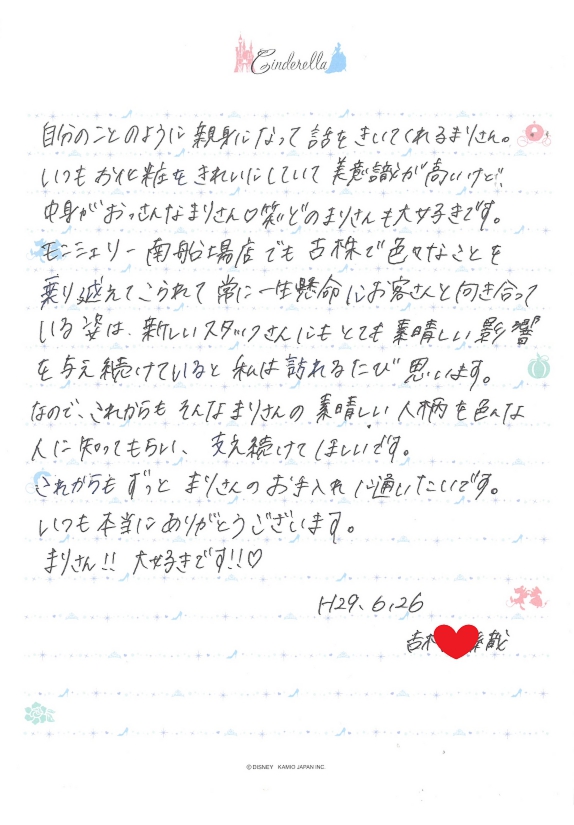 Cinderella
自分のことのように親身になって話をきいてくれるまりさん。
いつもお化粧をきれいにしていて美意識が高いけど、
中身がおっさんなまりさん♡笑 どのまりさんも大好きです。
モンシェリー南船場店でも古株で色々なことを
乗り越えてこられて常に一生懸命にお客さんと向き合って
いる姿は、新しいスタッフさんにもとても素晴しい影響
を与え続けていると私は訪れるたび思います。
なので、これからもそんなまりさんの素晴しい人柄を色んな
人に知ってもらい、支え続けてほしいです。
これからもずっとまりさんのお手入れに通いたいです。
いつも本当にありがとうございます。
まりさん!! 大好きです!!♡
H29.6.26
©DISNEY KAMIO JAPAN INC.